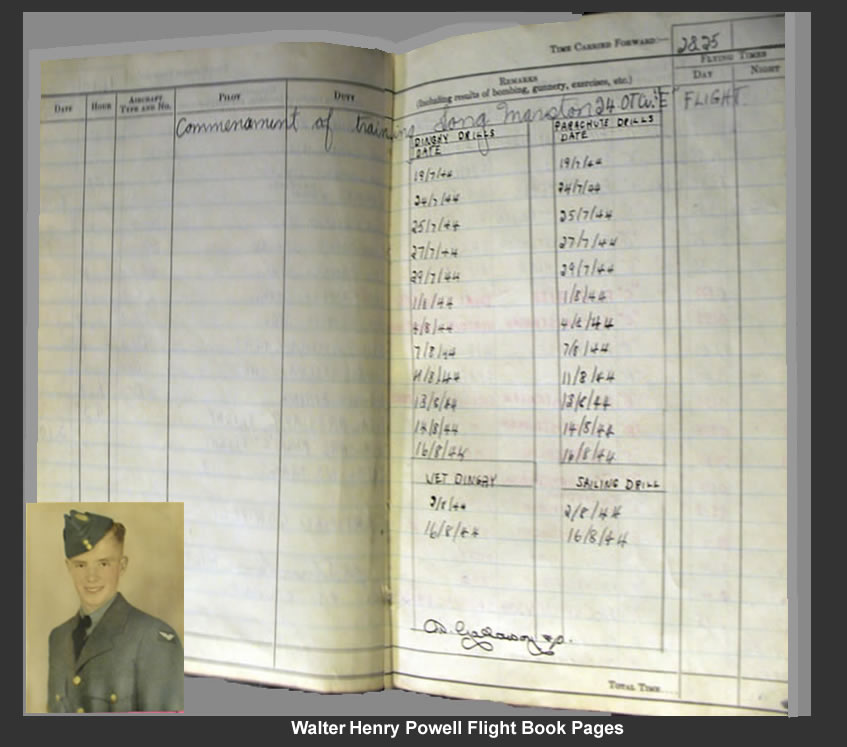 TIME CARRIED FORWARD:— 2825
DATE HOUR AIRCRAFT TYPE AND NO. PILOT DUTY
REMARKS
(Including results of bombing, gunnery, exercises, etc.)
FLYING TIMES
DAY NIGHT
Commenament of training Long Marston 24 OTU. "E" FLIGHT
DINGHY DRILLS PARACHUTE DRILLS
DATE DATE
19/7/44 19/7/44
24/7/44 24/7/44
25/7/44 25/7/44
27/7/44 27/7/44
29/7/44 29/7/44
1/8/44 1/8/44
4/8/44 4/8/44
7/8/44 7/8/44
11/8/44 11/8/44
13/8/44 13/8/44
14/8/44 14/8/44
16/8/44 16/8/44
WET DINGHY SAILING DRILL
2/8/44 2/8/44
16/8/44 16/8/44
TOTAL TIME....
Walter Henry Powell Flight Book Pages